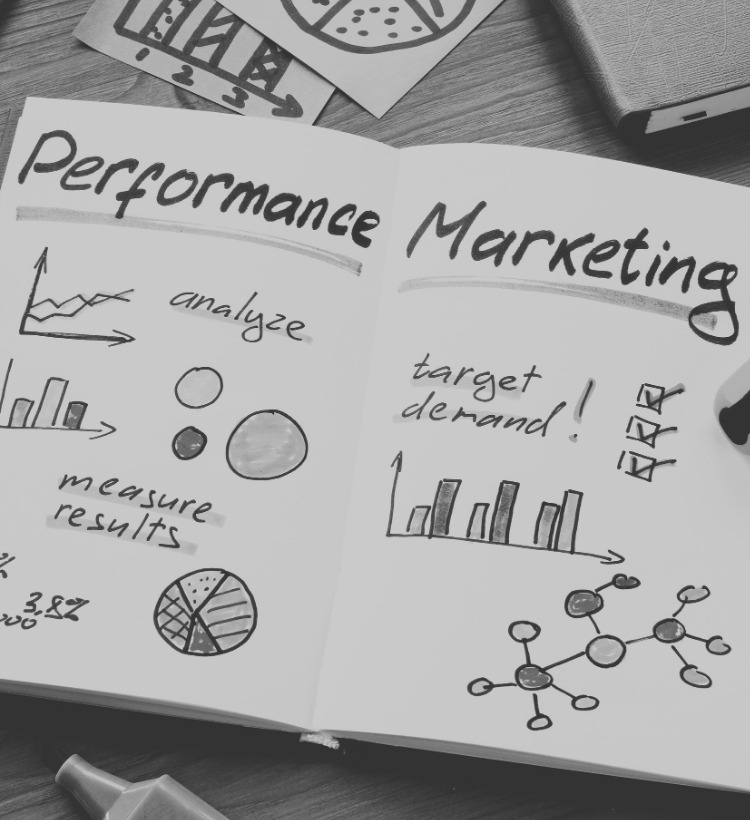 1 2 3
Performance
analyze
measure
results
%
3,8%
000
Marketing
target
demand!